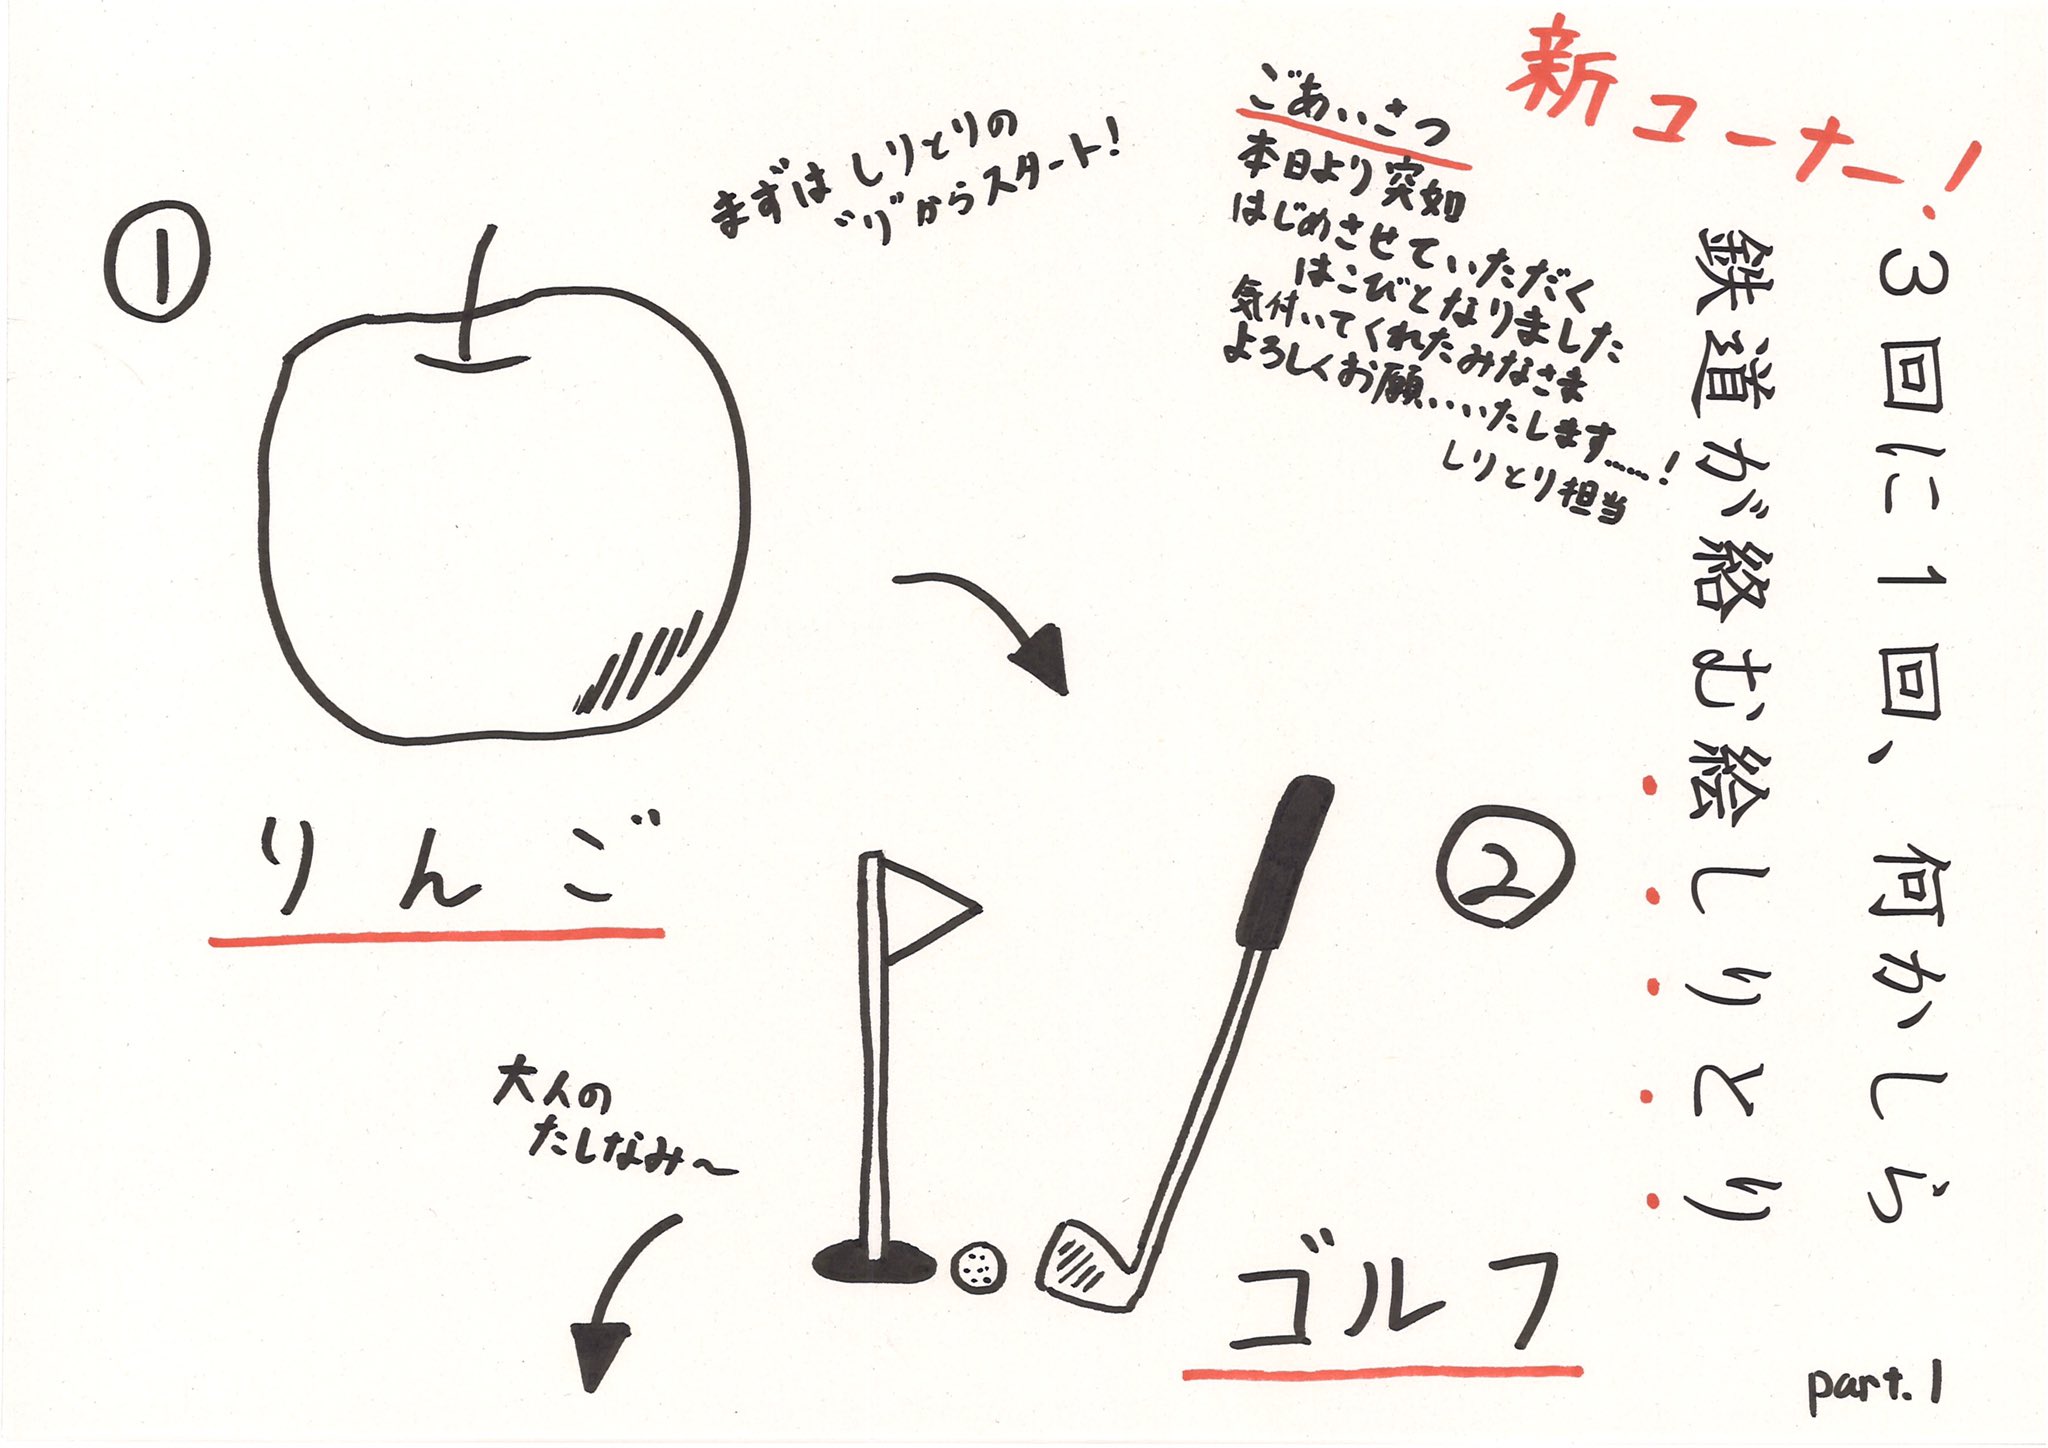 新コーナー！
3回に1回、何かしら
鉄道が絡む絵しりとり
ごあいさつ
本日より突如
はじめさせていただく
はこびとなりました
気付いてくれたみなさま
よろしくお願いいたします……！
しりとり担当
まずはしりとりの
"り"からスタート！
①
りんご
②
ゴルフ
大人の
たしなみ〜
part.1